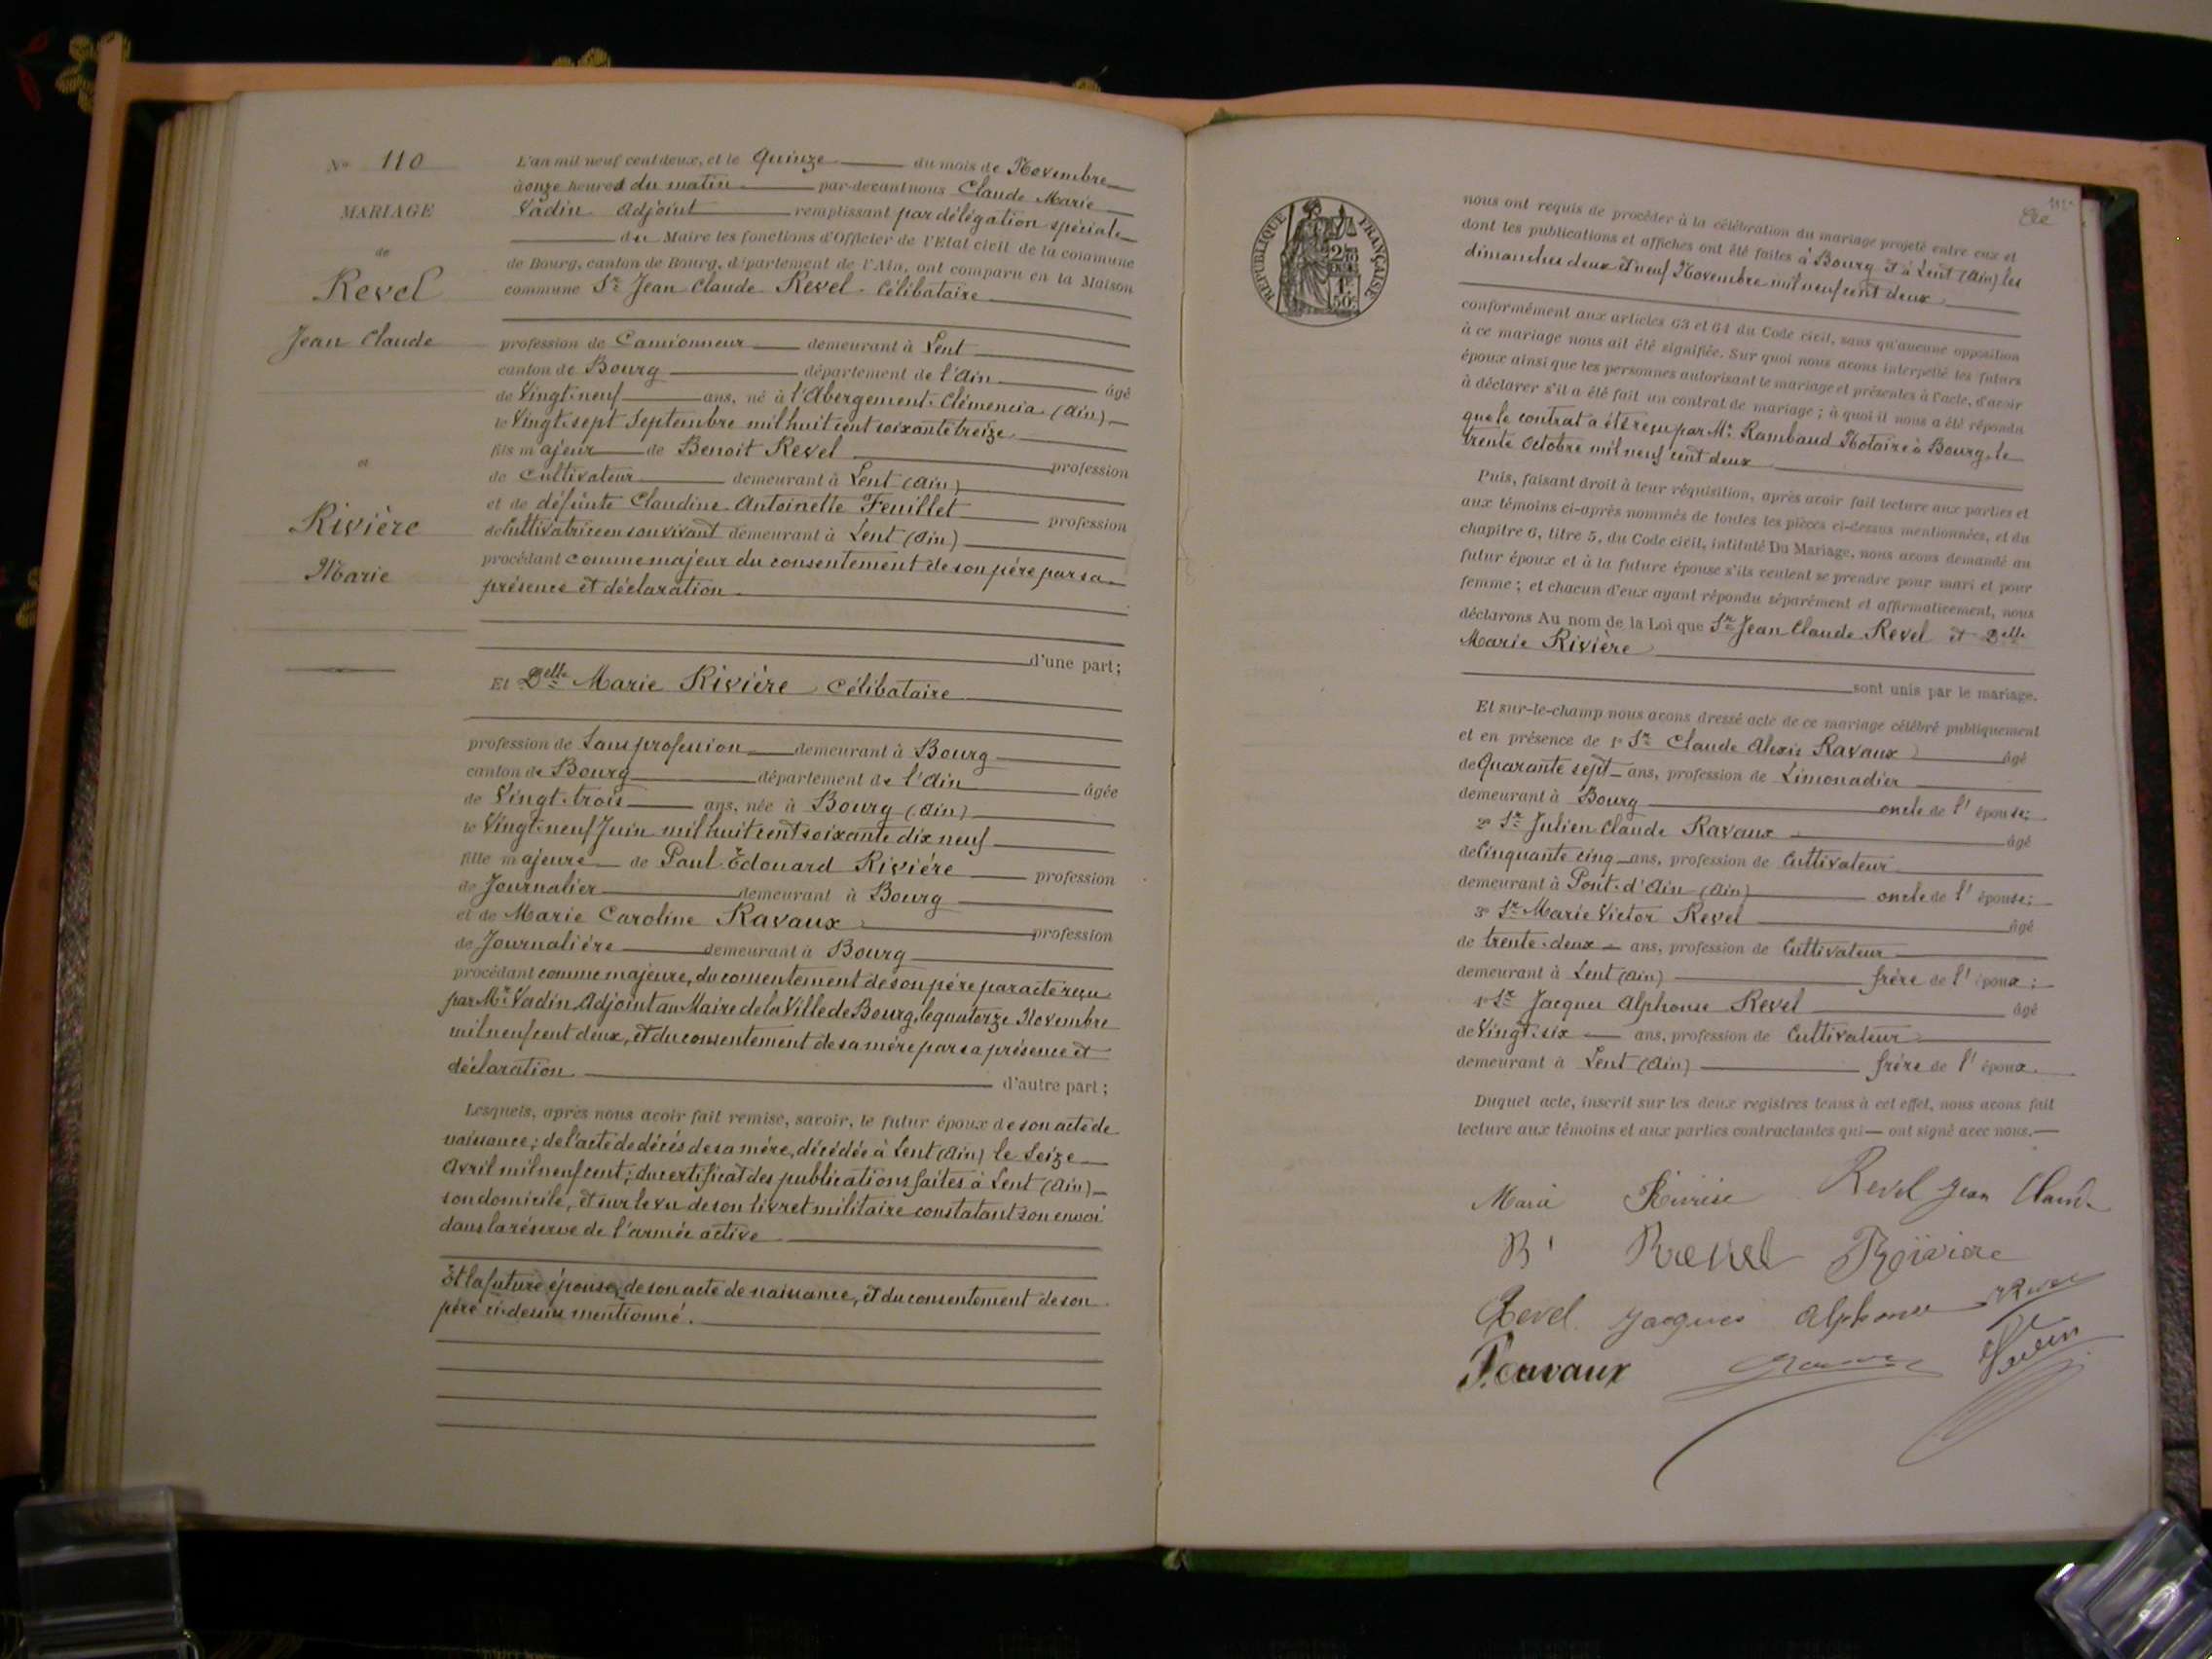 No 110
MARIAGE
de
Revel
Jean Claude
et
Rivière
Marie
L'an mil neuf cent deux, et le Quinze du mois de Novembre
à onze heures du matin par-devant nous Claude Marie
Vadin Adjoint remplissant par délégation spéciale
du Maire les fonctions d'Officier de l'Etat civil de la commune
de Bourg, canton de Bourg, département de l'Ain, ont comparu en la Maison
commune Sr Jean Claude Revel - Célibataire
profession de Camionneur demeurant à Lent
canton de Bourg département de l'Ain âgé
de Vingt-neuf ans, né à l'Abergement-Clémencia (Ain)
le Vingt-sept Septembre mil huit cent soixante treize
fils majeur de Benoit Revel profession
de Cultivateur demeurant à Lent (Ain)
et de défunte Claudine Antoinette Feuillet profession
de Cultivatrice en son vivant demeurant à Lent (Ain)
procédant comme majeur du consentement de son père par sa
présence et déclaration
d'une part;
Et Delle Marie Rivière Célibataire
profession de Sans profession demeurant à Bourg
canton de Bourg département de l'Ain âgée
de Vingt-trois ans, née à Bourg (Ain)
le Vingt-neuf Juin mil huit cent soixante dix neuf
fille majeure de Paul Edouard Riviére profession
de Journalier demeurant à Bourg
et de Marie Caroline Ravaux profession
de Journalière demeurant à Bourg
procédant comme majeure, du consentement de son père par acte reçu
par Mr Vadin Adjoint au Maire de la Ville de Bourg, le quatorze Novembre
mil neuf cent deux, et du consentement de sa mère par sa présence et
déclaration d'autre part;
Lesquels, après nous avoir fait remise, savoir, le futur époux de son acte de
naissance; de l'acte de décès de sa mère, décédée à Lent (Ain) le Seize
Avril mil neuf cent; du certificat des publications faites à Lent (Ain)
son domicile, et sur le vu de son livret militaire constatant son envoi
dans la réserve de l'armée active
Et la future épouse, de son acte de naissance, et du consentement de son
père ci-dessus mentionné.
RÉPUBLIQUE FRANÇAISE
nous ont requis de procéder à la célébration du mariage projeté entre eux et
dont les publications et affiches ont été faites à Bourg et à Lent (Ain) les
dimanches deux et neuf Novembre mil neuf cent deux
conformément aux articles 63 et 64 du Code civil, sans qu'aucune opposition
à ce mariage nous ait été signifiée. Sur quoi nous avons interpellé les futurs
époux ainsi que les personnes autorisant le mariage et présentes à l'acte, d'avoir
à déclarer s'il a été fait un contrat de mariage; à quoi il nous a été répondu
que le contrat a été reçu par Me Rambaud Notaire à Bourg, le
trente Octobre mil neuf cent deux
Puis, faisant droit à leur réquisition, après avoir fait lecture aux parties et
aux témoins ci-après nommés de toutes les pièces ci-dessus mentionnées, et du
chapitre 6, titre 5, du Code civil, intitulé Du Mariage, nous avons demandé au
futur époux et à la future épouse s'ils veulent se prendre pour mari et pour
femme; et chacun d'eux ayant répondu séparément et affirmativement, nous
déclarons Au nom de la Loi que Sr Jean Claude Revel et Delle
Marie Rivière
sont unis par le mariage.
Et sur-le-champ nous avons dressé acte de ce mariage célébré publiquement
et en présence de 1° Sr Claude Alexis Ravaux âgé
de Quarante sept ans, profession de Limonadier
demeurant à Bourg oncle de l'épouse;
2° Sr Julien Claude Ravaux âgé
de Cinquante cinq ans, profession de Cultivateur
demeurant à Pont-d'Ain (Ain) oncle de l'épouse;
3° Sr Marie Victor Revel âgé
de trente-deux ans, profession de Cultivateur
demeurant à Lent (Ain) frère de l'époux;
4° Sr Jacques Alphonse Revel âgé
de Vingt-six ans, profession de Cultivateur
demeurant à Lent (Ain) frère de l'époux.
Duquel acte, inscrit sur les deux registres tenus à cet effet, nous avons fait
lecture aux témoins et aux parties contractantes qui ont signé avec nous.
Maria Rivière Revel Jean Claude
B Revel Rivière
Revel Jacques Alphonse Revel
Ravaux Vadin